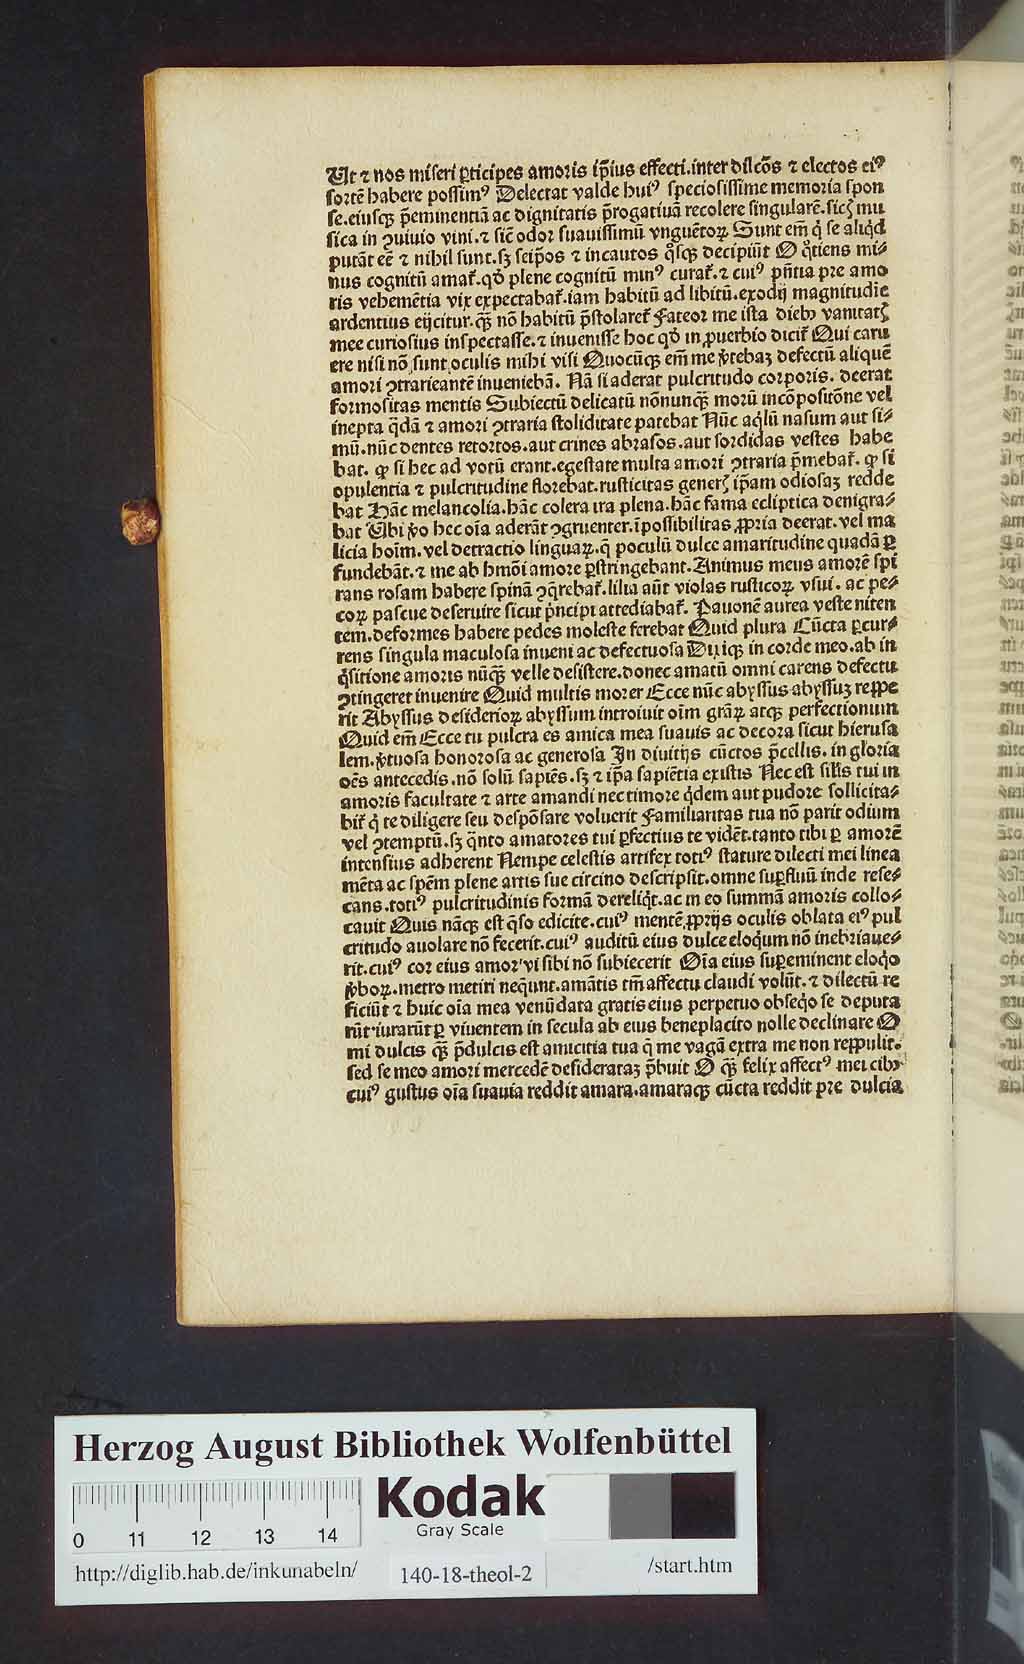 Ut ⁊ nos miseri ꝑticipes amoris ip̄ius effecti.inter dilcōs ⁊ electos eiꝰ
sortē habere possimꝰ Delectat valde huiꝰ speciosissime memoria spon
se.eiusqꝫ p̄eminentiā ac dignitatis p̄rogatiuā recolere singularē.sicꝫ mu
sica in ꝯuiuio vini.⁊ sic̄ odor suauissimū vnguētoꝝ Sunt em̄ q̇ se aliq̇d
putāt eē ⁊ nihil sunt.sꝫ seip̄os ⁊ incautos q̊sqꝫ decipiūt O q̊tiens mi⸗
nus cognitū amat᷑.qd̕ plene cognitū minꝰ curat᷑.⁊ cuiꝰ pn̄tia pre amo
ris vehemētia vix expectabat᷑.iam habitū ad libitū.exodij magnitudīe
ardentius eijcitur.qꝫ̄ nō habitū p̄stolaret᷑ Fateor me ista dieb᷒ vanitatꝭ
mee curiosius inspectasse.⁊ inuenisse hoc qd̕ in ꝓuerbio dicit᷑ Qui caru
ere nisi nō sunt oculis mihi visi Quocūqꝫ em̄ me v̓tebaꝫ defectū aliquē
amori ꝯtrarieantē inueniebā. Nā si aderat pulcritudo corporis. deerat
formositas mentis Subiectū delicatū nōnunqꝫ̄ morū incōpositōne vel
inepta q̄dā ⁊ amori ꝯtraria stoliditate patebat Nūc aq̇lū nasum aut si⸗
mū.nūc dentes retortos.aut crines abrasos.aut sordidas vestes habe
bat. ꝙ si hec ad votū erant.egestate multa amori ꝯtraria p̄mebat᷑. ꝙ si
opulentia ⁊ pulcritudine florebat.rusticitas generꝭ ip̄am odiosaꝫ redde
bat Hāc melancolia.hāc colera ira plena.hāc fama ecliptica denigra⸗
bat Ubi v̓o hec oīa aderāt ꝯgruenter.īpossibilitas ꝓpria deerat.vel ma
licia hoīm.vel detractio linguaꝝ.q̄ poculū dulce amaritudine quadā ꝑ
fundebāt.⁊ me ab hmōi amore ꝑstringebant.Animus meus amorē spi
rans rosam habere spinā ꝯq̄rebat᷑.lilia aūt violas rusticoꝝ vsui. ac pe⸗
coꝝ pascue deseruire sicut p̄ncipi attediabat᷑. Pauonē aurea veste niten
tem.deformes habere pedes moleste ferebat Quid plura Cūcta ꝑcur⸗
rens singula maculosa inueni ac defectuosa Dixiqꝫ in corde meo.ab in
q̇sitione amoris nūqꝫ̄ velle desistere.donec amatū omni carens defectu
ꝯtingeret inuenire Quid multis moror Ecce nūc abyssus abyssuꝫ reꝑpe
rit Abyssus desiderioꝝ abyssum introiuit oīm grāꝝ atqꝫ perfectionum
Quid em̄ Ecce tu pulcra es amica mea suauis ac decora sicut hierusa
lem.v̓tuosa honorosa ac generosa In diuitijs cūctos p̄cellis. in gloria
oēs antecedis.nō solū sapiēs.sꝫ ⁊ ip̄a sapiētia existis Nec est sil̄is tui in
amoris facultate ⁊ arte amandi nec timore q̇dem aut pudore sollicita⸗
bit᷑ q̇ te diligere seu despōsare voluerit Familiaritas tua nō parit odium
vel ꝯtemptū.sꝫ q̄nto amatores tui ꝑfectius te vidēt.tanto tibi ꝑ amorē
intensius adherent Nempe celestis artifex totiꝰ stature dilecti mei linea
mēta ac spēm plene artis sue circino descripsit.omne suꝑfluū inde rese⸗
cans.totiꝰ pulcritudinis formā dereliq̇t.ac in eo summā amoris collo⸗
cauit Quis nāqꝫ est q̄so edicite.cuiꝰ mentē ꝓprijs oculis oblata eiꝰ pul
critudo auolare nō fecerit.cuiꝰ auditū eius dulce eloqum nō inebriaue⸗
rit.cuiꝰ cor eius amor vi sibi nō subiecerit Oīa eius suꝑeminent eloq̇o
v̓boꝝ.metro metiri nequnt.amātis tm̄ affectu claudi volūt.⁊ dilectū re
ficiūt ⁊ huic oīa mea venūdata gratis eius perpetuo obseq̇o se deputa
rūt.iurarūt ꝑ viuentem in secula ab eius beneplacito nolle declinare O
mi dulcis qꝫ̄ p̄dulcis est amicitia tua q̄ me vagā extra me non reꝑpulit.
sed se meo amori mercedē desiderataꝫ p̄buit O qꝫ̄ felix affectꝰ mei cib᷒
cuiꝰ gustus oīa suauia reddit amara.amaraqꝫ cūcta reddit pre dulcia
Herzog August Bibliothek Wolfenbüttel
Kodak
Gray Scale
0 11 12 13 14
http://diglib.hab.de/inkunabeln/ 140-18-theol-2 /start.htm